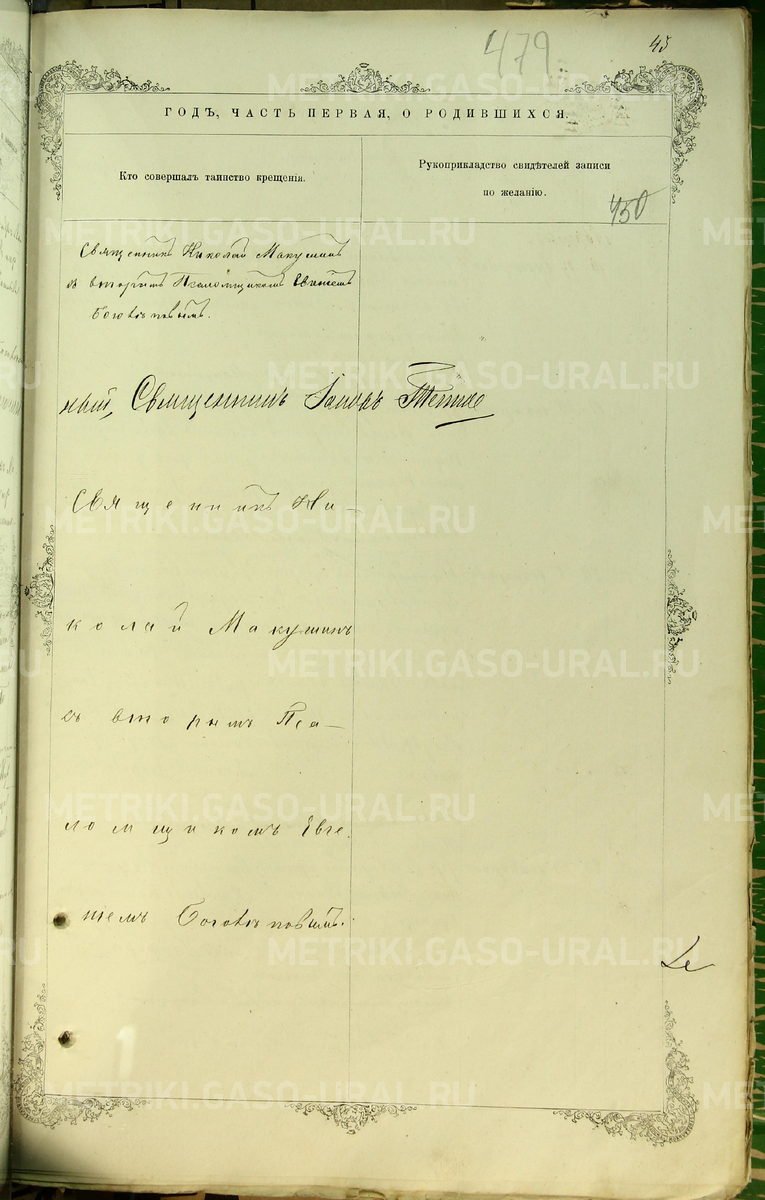 479
45
ГОДЪ, ЧАСТЬ ПЕРВАЯ, О РОДИВШИХСЯ.
Кто совершалъ таинство крещенія.
Рукоприкладство свидѣтелей записи
по желанію.
450
Священникъ Николай Макушинъ
съ вторымъ Псаломщикомъ
Боговымъ.
ный, Священникъ
Священникъ Ни-
колай Макушинъ
съ вторымъ Пса-
ломщикомъ Евге-
ніемъ
METRIKI.GASO-URAL.RU